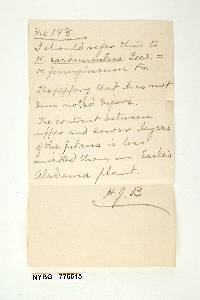 No 148
I should refer this to
H. carbunculus Secr. =
H. ferrugineum Fr.
The peppery that has not
been noted before.
The contrast between
upper and lower layers
of the pileus is less
marked than in Earle's
Alabama plant.
H J B
NYBG 776513